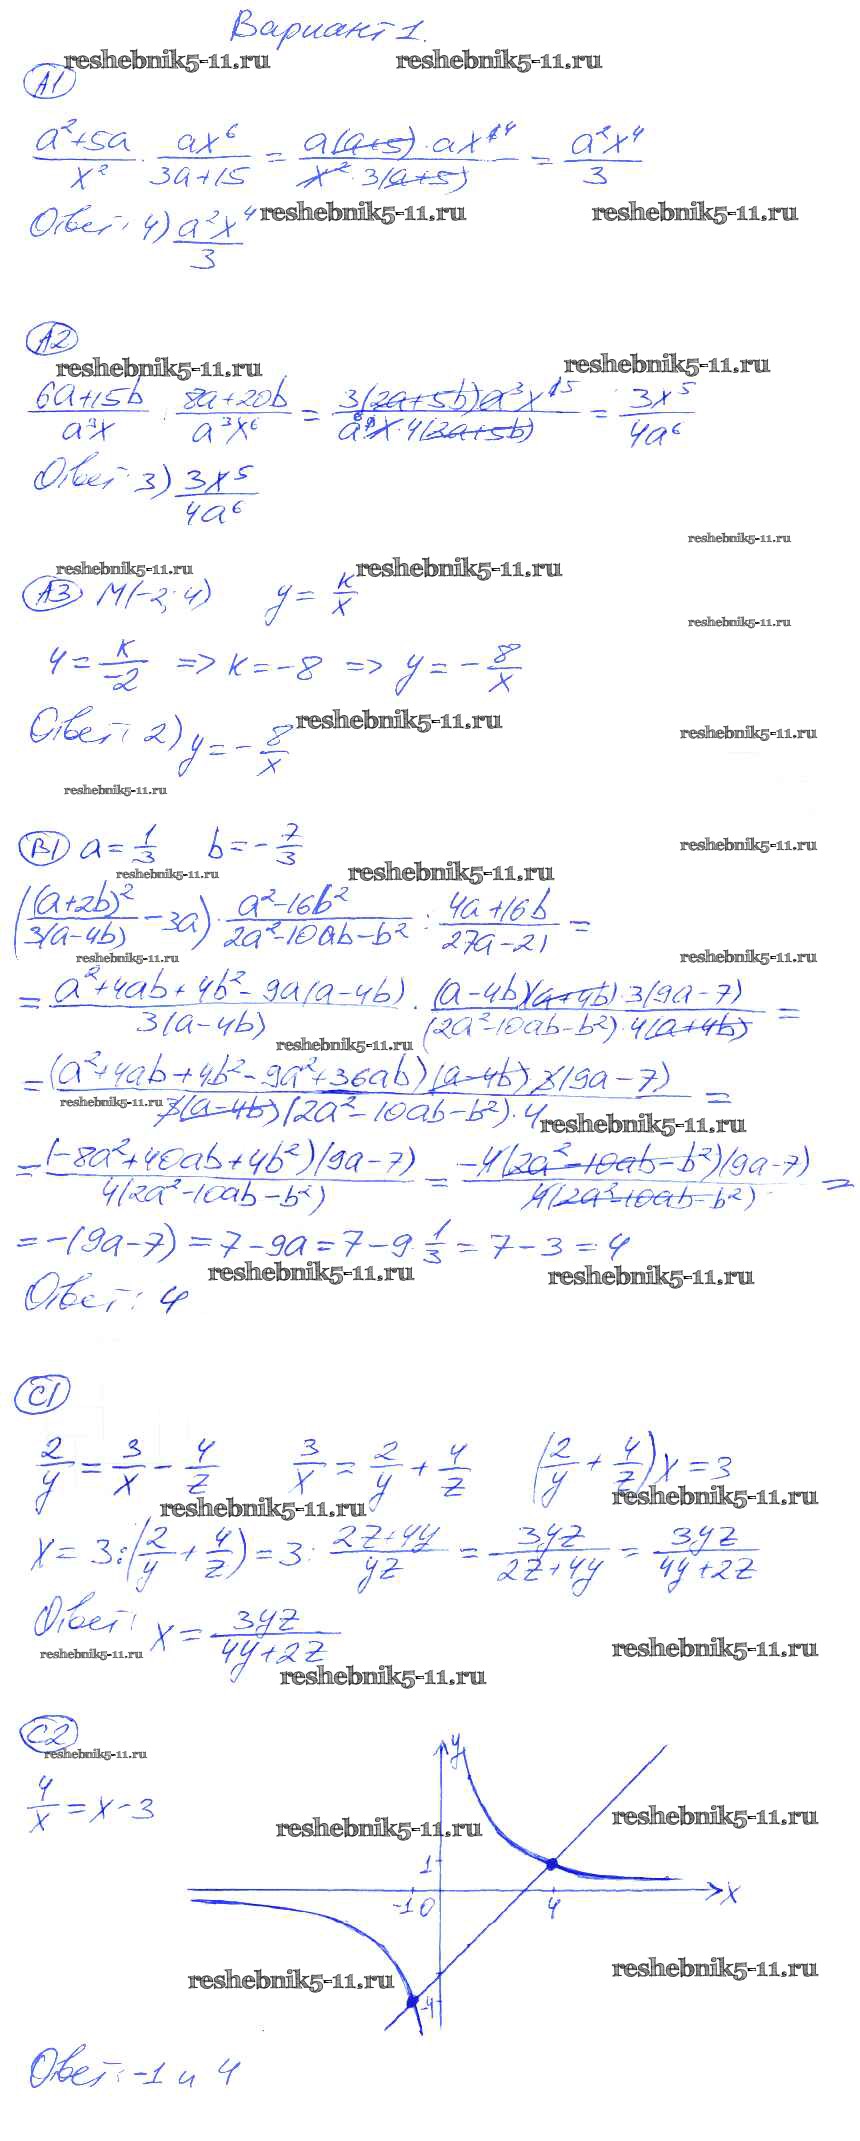 Вариант 1.
reshebnik5-11.ru reshebnik5-11.ru
А1
(a²+5a)/x² · ax⁶/(3a+15) = (a(a+5)·ax⁶ ⁴)/(x²·3(a+5)) = a²x⁴/3
Ответ: 4) a²x⁴/3 reshebnik5-11.ru reshebnik5-11.ru
А2
reshebnik5-11.ru reshebnik5-11.ru
(6a+15b)/(a⁹x) : (8a+20b)/(a³x⁶) = (3(2a+5b)a³x⁶ ⁵)/(a⁹ ⁶x·4(2a+5b)) = 3x⁵/4a⁶
Ответ: 3) 3x⁵/4a⁶
reshebnik5-11.ru
reshebnik5-11.ru reshebnik5-11.ru
А3 М(-2; 4) y = k/x
reshebnik5-11.ru
4 = k/-2 => k = -8 => y = -8/x
Ответ: 2) y = -8/x reshebnik5-11.ru reshebnik5-11.ru
reshebnik5-11.ru
В1 a = 1/3 b = -7/3 reshebnik5-11.ru
reshebnik5-11.ru reshebnik5-11.ru
((a+2b)²/3(a-4b) - 3a) · (a²-16b²)/(2a²-10ab-b²) : (4a+16b)/(27a-21) =
reshebnik5-11.ru reshebnik5-11.ru
= (a²+4ab+4b²-9a(a-4b))/3(a-4b) · ((a-4b)(a+4b)·3(9a-7))/((2a²-10ab-b²)·4(a+4b)) =
reshebnik5-11.ru
= ((a²+4ab+4b²-9a²+36ab)(a-4b)3(9a-7))/(3(a-4b)(2a²-10ab-b²)·4) =
reshebnik5-11.ru reshebnik5-11.ru
= ((-8a²+40ab+4b²)(9a-7))/(4(2a²-10ab-b²)) = (-4(2a²-10ab-b²)(9a-7))/(4(2a²-10ab-b²)) =
= -(9a-7) = 7-9a = 7-9·1/3 = 7-3 = 4
reshebnik5-11.ru reshebnik5-11.ru
Ответ: 4
С1
2/y = 3/x - 4/z 3/x = 2/y + 4/z (2/y + 4/z)x = 3
reshebnik5-11.ru reshebnik5-11.ru
x = 3:(2/y + 4/z) = 3 : (2z+4y)/yz = 3yz/(2z+4y) = 3yz/(4y+2z)
Ответ: x = 3yz/(4y+2z)
reshebnik5-11.ru reshebnik5-11.ru
reshebnik5-11.ru
С2
reshebnik5-11.ru
y
4/x = x-3
reshebnik5-11.ru reshebnik5-11.ru
1
-1 0 4 x
reshebnik5-11.ru reshebnik5-11.ru
-4
Ответ: -1 и 4